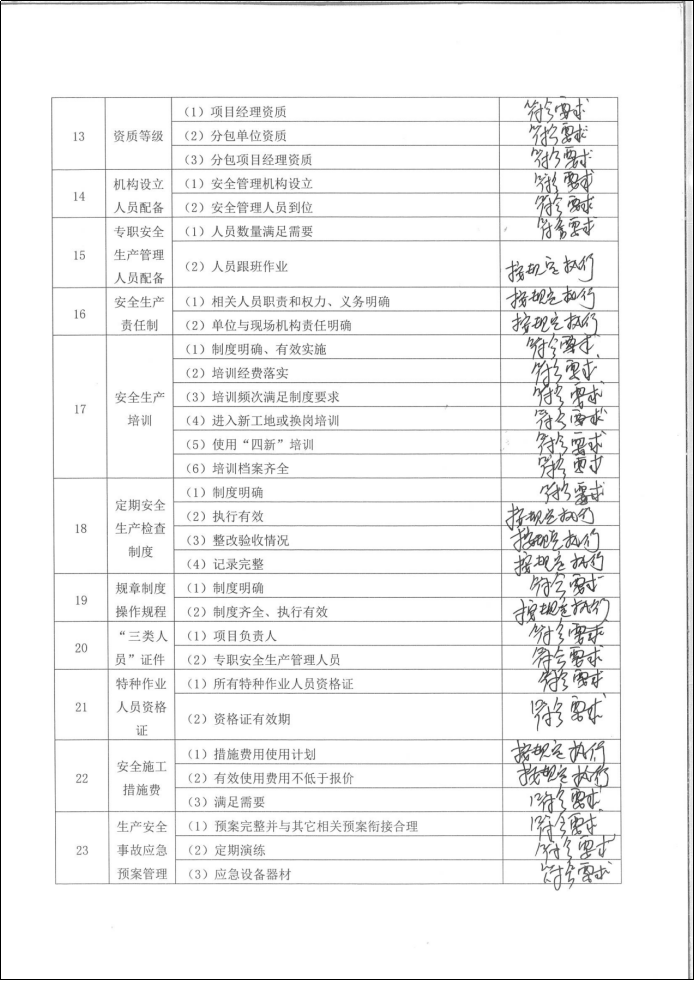 13 资质等级 （1）项目经理资质 符合要求
（2）分包单位资质 符合要求
（3）分包项目经理资质 符合要求
14 机构设立人员配备 （1）安全管理机构设立 符合要求
（2）安全管理人员到位 符合要求
15 专职安全生产管理人员配备 （1）人员数量满足需要 符合要求
（2）人员跟班作业 按规定执行
16 安全生产责任制 （1）相关人员职责和权力、义务明确 按规定执行
（2）单位与现场机构责任明确 按规定执行
17 安全生产培训 （1）制度明确、有效实施 符合要求
（2）培训经费落实 符合要求
（3）培训频次满足制度要求 符合要求
（4）进入新工地或换岗培训 符合要求
（5）使用“四新”培训 符合要求
（6）培训档案齐全 符合要求
18 定期安全生产检查制度 （1）制度明确 符合要求
（2）执行有效 按规定执行
（3）整改验收情况 按规定执行
（4）记录完整 按规定执行
19 规章制度操作规程 （1）制度明确 符合要求
（2）制度齐全、执行有效 按规定执行
20 “三类人员”证件 （1）项目负责人 符合要求
（2）专职安全生产管理人员 符合要求
21 特种作业人员资格证 （1）所有特种作业人员资格证 符合要求
（2）资格证有效期 符合要求
22 安全施工措施费 （1）措施费用使用计划 按规定执行
（2）有效使用费用不低于报价 按规定执行
（3）满足需要 符合要求
23 生产安全事故应急预案管理 （1）预案完整并与其它相关预案衔接合理 符合要求
（2）定期演练 符合要求
（3）应急设备器材 符合要求